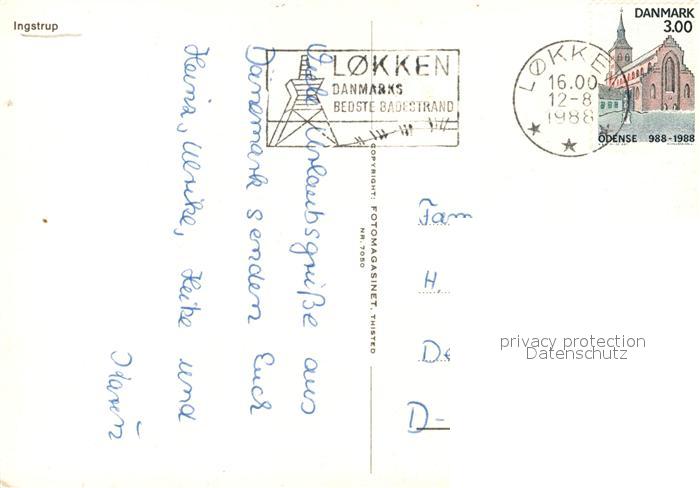 Ingstrup
Viele Urlaubsgrüße aus
Dänemark senden Euch
Heinz, Ulrike, Heike und
LØKKEN
DANMARKS
BEDSTE BADESTRAND
LØKKEN
16.00
12-8
1988
DANMARK
3.00
ODENSE 988-1988
COPYRIGHT: FOTOMAGASINET, THISTED
NR. 7050
Fam
H.
De
D-
privacy protection
Datenschutz